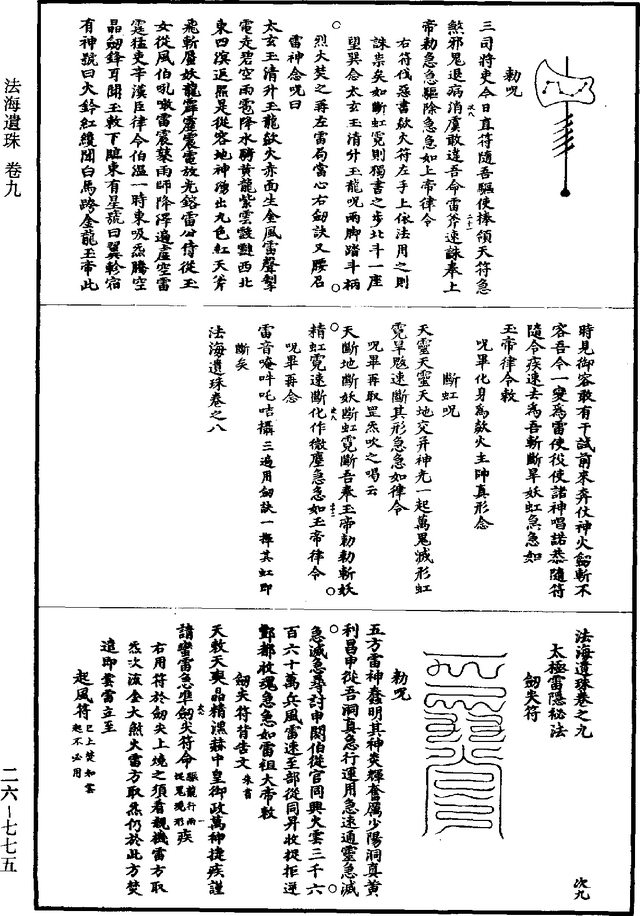 法海遺珠 卷九
二六-七七五
勑呪
三司將吏今日直符隨吾驅使捧領天符急
煞邪鬼退病消虞敢違吾命雷斧速誅奉上
帝勑急急驅除急急如上帝律令
右符伐惡書歘火符左手上依法用之則
誅祟矣如斷虹霓則獨書之步北斗一座
望巽念太玄玉清升玉龍呪兩脚踏斗柄
烈火焚之再在雷局當心右劍訣叉腰召
雷神念呪曰
太玄玉清升玉龍歘火赤面生金風雷聲掣
電走碧空雨雹降水騎黃龍紫雲靉靆西北
東四溟返照是從容地神湧出九色紅天斧
飛斬蜃妖龍霹靂震電放光鎔雷公侍從玉
女從風伯吼噉雷震驇雨師降澤遍虛空雷
霆猛吏辛漢臣律令伯溫一時東吸炁騰空
晶劍鋒耳聞玉敕下臨東有星號曰翼軫宿
有神號曰火鈴紅纓閒白馬跨金龍玉帝此
時見御容敢有干試前來奔伏神火劍斬不
容吾今一變為雷使役使諸神唱諾恭隨符
隨令疾速去為吾斬斷旱妖虹急急如
玉帝律令敕
呪畢化身為歘火主帥真形念
斷虹呪
天靈天靈天地交并神光一起萬鬼滅形虹
霓旱魃速斷其形急急如律令
呪畢再取罡炁吹之喝云
天斷地斷妖斷虹霓斷吾奉玉帝勑勑斬妖
精虹霓速斷化作微塵急急如玉帝律令
呪畢再念
雷音唵吽吒咭攝三遍用劍訣一揮其虹即
斷矣
法海遺珠卷之八
法海遺珠卷之九
次九
太極雷隱祕法
劍尖符
勑呪
五方雷神蠢明其神炎輝奮厲少陽洞真黃
利昌申從吾洞真急行運用急速通靈急滅
急滅急尋討申閼伯從官同興火雲三千六
百六十萬兵風雷速至部從同昇收捉拒逆
酆都收魂急急如雷祖大帝敕
劍尖符背告文
朱書
天敕天輿晶精濕赫中皇御政萬神捷疾謹
請蠻雷急準劍尖符命驅龍行雨從鬼現形疾
右用符於劍尖上燒之須看觀機雷方取
炁次深金火煞火雷方取炁仍於此方焚
遣即雲雷立至
起風符
已上從如雲起不必用